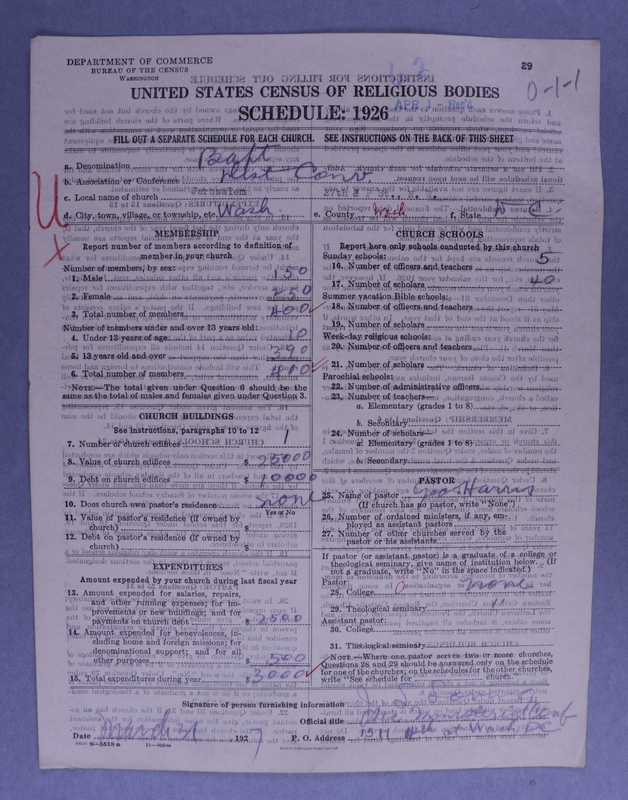 DEPARTMENT OF COMMERCE
BUREAU OF THE CENSUS
WASHINGTON
29
0-1-1
UNITED STATES CENSUS OF RELIGIOUS BODIES
APR 1
SCHEDULE: 1926
FILL OUT A SEPARATE SCHEDULE FOR EACH CHURCH. SEE INSTRUCTIONS ON THE BACK OF THIS SHEET
a. Denomination Bapt
b. Association or Conference Conv.
c. Local name of church Jerusalem
d. City, town, village, or township, etc. Wash.
e. County Wash f. State D C.
MEMBERSHIP
Report number of members according to definition of
member in your church
Number of members, by sex:
1. Male 150
2. Female 250
3. Total number of members 400
Number of members under and over 13 years old:
4. Under 13 years of age 10
5. 13 years old and over 390
6. Total number of members 400
NOTE.—The total given under Question 6 should be the
same as the total of males and females given under Question 3.
CHURCH BUILDINGS
See instructions, paragraphs 10 to 12
7. Number of church edifices 1
8. Value of church edifices $ 25000
9. Debt on church edifices $ 10000
10. Does church own pastor's residence? none
Yes or No
11. Value of pastor's residence (if owned by
church) $
12. Debt on pastor's residence (if owned by
church) $
EXPENDITURES
Amount expended by your church during last fiscal year
13. Amount expended for salaries, repairs,
and other running expenses; for im-
provements or new buildings; and for
payments on church debt $ 2500
14. Amount expended for benevolences, in-
cluding home and foreign missions; for
denominational support; and for all
other purposes $ 500
15. Total expenditures during year $ 3000
CHURCH SCHOOLS
Report here only schools conducted by this church
Sunday schools:
16. Number of officers and teachers 5
17. Number of scholars 40
Summer vacation Bible schools:
18. Number of officers and teachers
19. Number of scholars
Week-day religious schools:
20. Number of officers and teachers
21. Number of scholars
Parochial schools:
22. Number of administrative officers
23. Number of teachers—
a. Elementary (grades 1 to 8)
b. Secondary
24. Number of scholars—
a. Elementary (grades 1 to 8)
b. Secondary
PASTOR
25. Name of pastor Geo Harris
(If church has no pastor, write "None")
26. Number of ordained ministers, if any, em-
ployed as assistant pastors
27. Number of other churches served by the
pastor or his assistants
If pastor (or assistant pastor) is a graduate of a college or
theological seminary, give name of institution below. (If
not a graduate, write "No" in the space indicated.)
Pastor:
28. College none
29. Theological seminary
Assistant pastor:
30. College
31. Theological seminary
NOTE.—Where one pastor serves two or more churches,
Questions 28 and 29 should be answered only on the schedule
for one of the churches; on the schedules for the other churches,
write "See schedule for church."
Signature of person furnishing information
Official title
Date March 31 1927 P. O. Address Wash DC